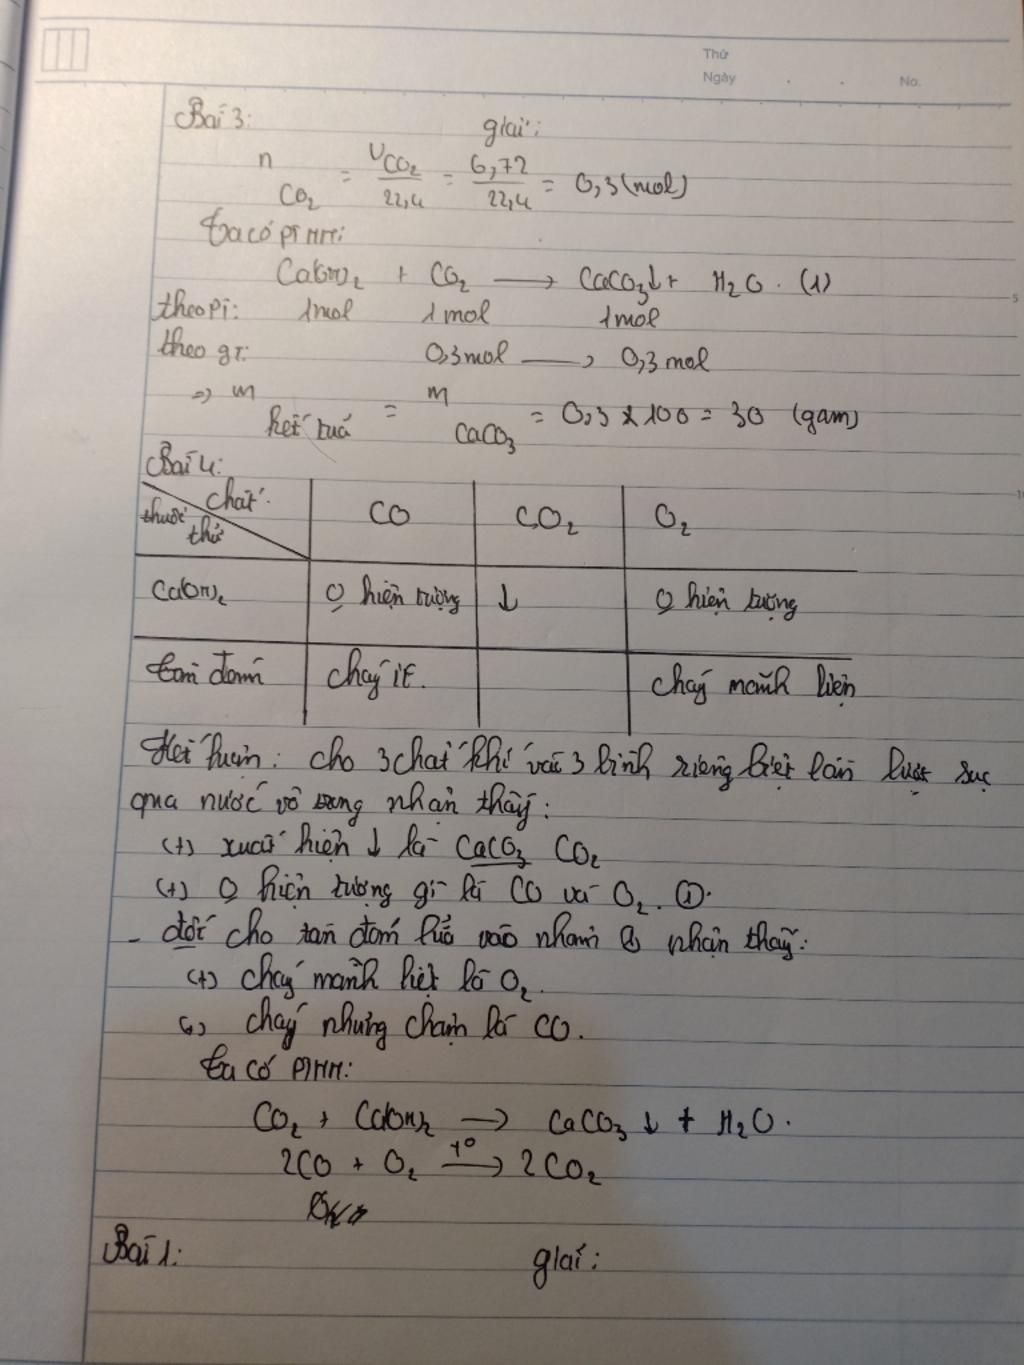 Thứ
Ngày . . No.
Bài 3: giải:
n CO2 = VCO2/22,4 = 6,72/22,4 = 0,3 (mol)
Ta có PTHH:
Ca(OH)2 + CO2 → CaCO3↓ + H2O. (1)
theo PT: 1mol 1mol 1mol
theo gt: 0,3mol → 0,3mol
=> m kết tủa = m CaCO3 = 0,3 x 100 = 30 (gam)
Bài 4:
chất thuốc thử CO CO2 O2
Ca(OH)2 O hiện tượng ↓ O hiện tượng
tàn đóm cháy ít. cháy mãnh liện
Kết luận: cho 3 chất khí vào 3 bình riêng biệt lần lượt sục
qua nước vô trong nhận thấy:
(+) xuất hiện ↓ là CaCO3 CO2
(+) O hiện tượng gì là CO và O2. (1).
- đốt cho tàn đóm lửa vào nhóm (1) nhận thấy:
(+) cháy mãnh liệt là O2.
(+) cháy nhưng chậm là CO.
Ta có PTHH:
CO2 + Ca(OH)2 → CaCO3 ↓ + H2O.
2CO + O2 t° → 2CO2
Bài 1: giải: